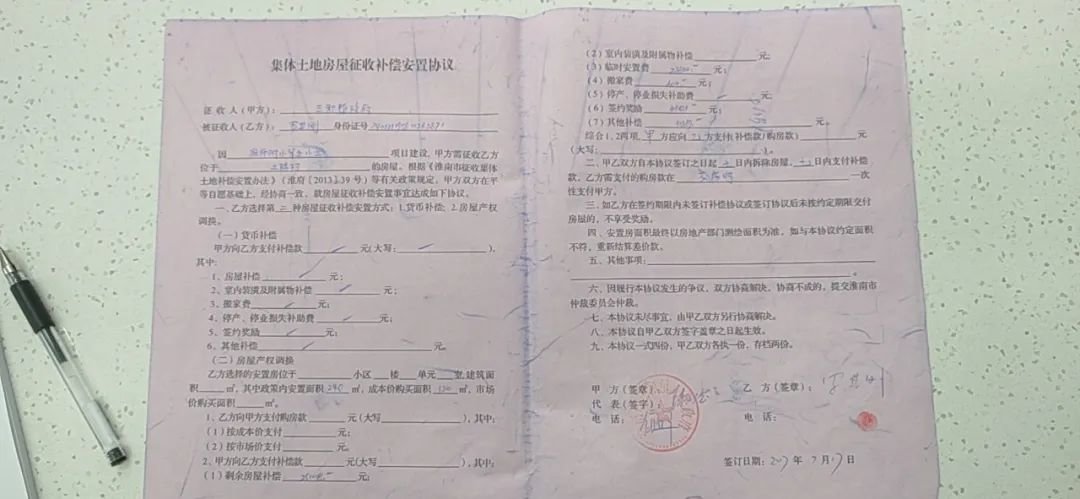 集体土地房屋征收补偿安置协议
征 收 人（甲方）：
被征收人（乙方）： 身份证号
因 项目建设，甲方需征收乙方
位于 的房屋。根据《淮南市征收集体
土地补偿安置办法》（淮府〔2013〕39号）等有关政策规定，甲方双方在平
等自愿基础上，经协商一致，就房屋征收补偿安置事宜达成如下协议。
一、乙方选择第 二 种房屋征收补偿安置方式：1.货币补偿；2.房屋产权
调换。
（一）货币补偿
甲方向乙方支付补偿款 元(大写： )。
其中：
1、房屋补偿 元；
2、室内装潢及附属物补偿 元；
3、搬家费 元；
4、停产、停业损失补助费 元；
5、签约奖励 元；
6、其他补偿 元。
（二）房屋产权调换
乙方选择的安置房位于 小区 楼 单元 室，建筑面
积 ㎡，其中政策内安置面积 240 ㎡，成本价购买面积 ㎡，市场
价购买面积 ㎡。
1、乙方向甲方支付购房款 元（大写 ），其中：
（1）按成本价支付 元；
（2）按市场价支付 元；
2、甲方向乙方支付补偿款 元(大写 )，其中：
（1）剩余房屋补偿 元；
（2）室内装潢及附属物补偿 元；
（3）临时安置费 元；
（4）搬家费 元；
（5）停产、停业损失补助费 元；
（6）签约奖励 元；
（7）其他补偿 元。
综合1、2两项，甲方应向乙方支付(补偿款/购房款) 元
（大写： ）。
二、甲乙双方自本协议签订之日起 日内拆除房屋， 日内支付补偿
款，乙方需支付的购房款在 交房时 一次
性支付甲方。
三、如乙方在签约期限内未签订补偿协议或签订协议后未按约定期限交付
房屋的，不享受奖励。
四、安置房面积最终以房地产部门测绘面积为准，如与本协议约定面积
不符，重新结算差价款。
五、其他事项：
六、因履行本协议发生的争议，双方协商解决，协商不成的，提交淮南市
仲裁委员会仲裁。
七、本协议未尽事宜，由甲乙双方另行协商解决。
八、本协议自甲乙双方签字盖章之日起生效。
九、本协议一式四份，甲乙双方各执一份，存档两份。
甲 方（签章）： 乙 方（签章）：
代 表（签字）：
电 话： 电 话：
签订日期： 年 7 月 日